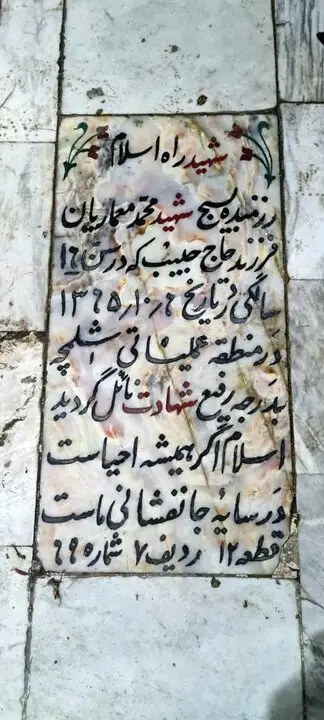 شهید راه اسلام
رزمنده بسیج شهید محمد معماریان
فرزند حاج حبیب که در سن ۱۶
سالگی در تاریخ ۱۳۶۵/۱۰/۶
در منطقه عملیاتی شلمچه
بدرجه رفیع شهادت نائل گردید
اسلام اگر همیشه احیاست
در سایه جانفشانی ماست
قطعه ۱۲ ردیف ۷ شماره ۶۹